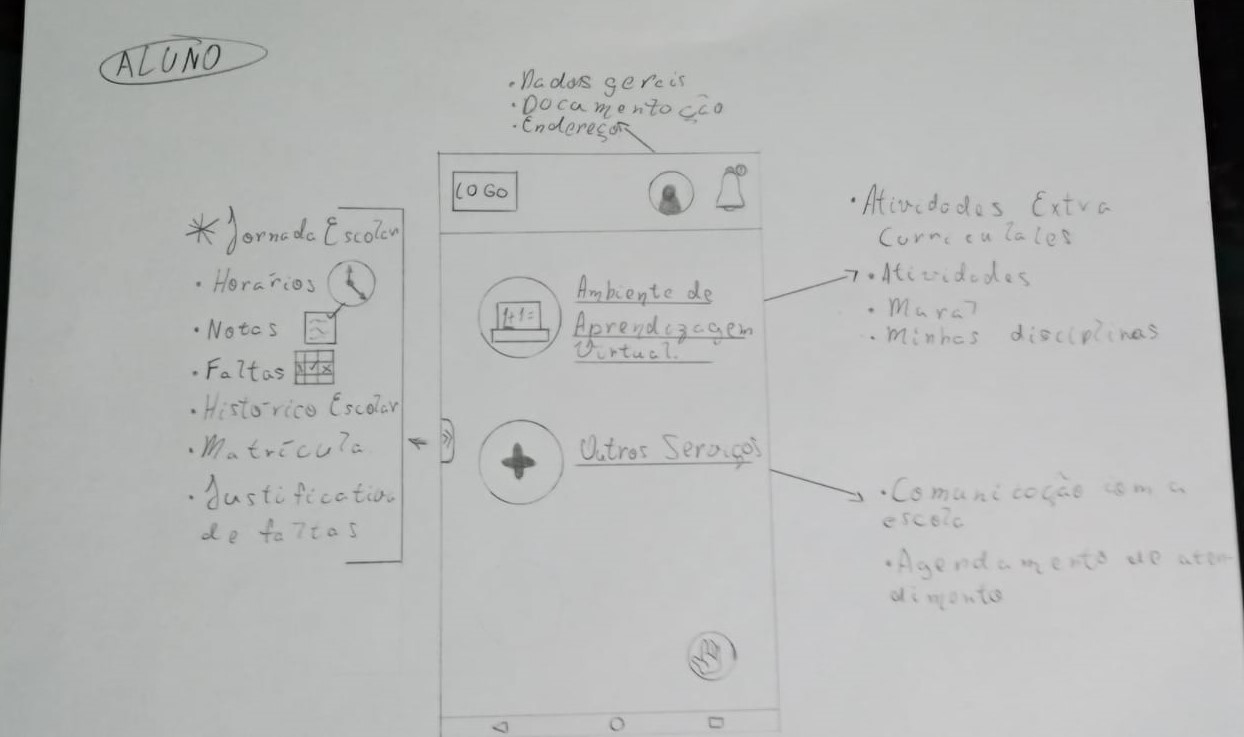 ALUNO
• Dados gerais
• Documentoção
• Endereços
LOGO
* Jornada Escolar
• Horários
• Notas
• Faltas
• Histórico Escolar
• Matrícula
• Justificativa
de faltas
Ambiente de
Aprendizagem
Virtual.
1+1=
Outros Serviços
• Atividades Extra
Curriculales
• Atividades
• Mural
• Minhas disciplinas
• Comunicação com a
escola
• Agendamento de aten-
dimento